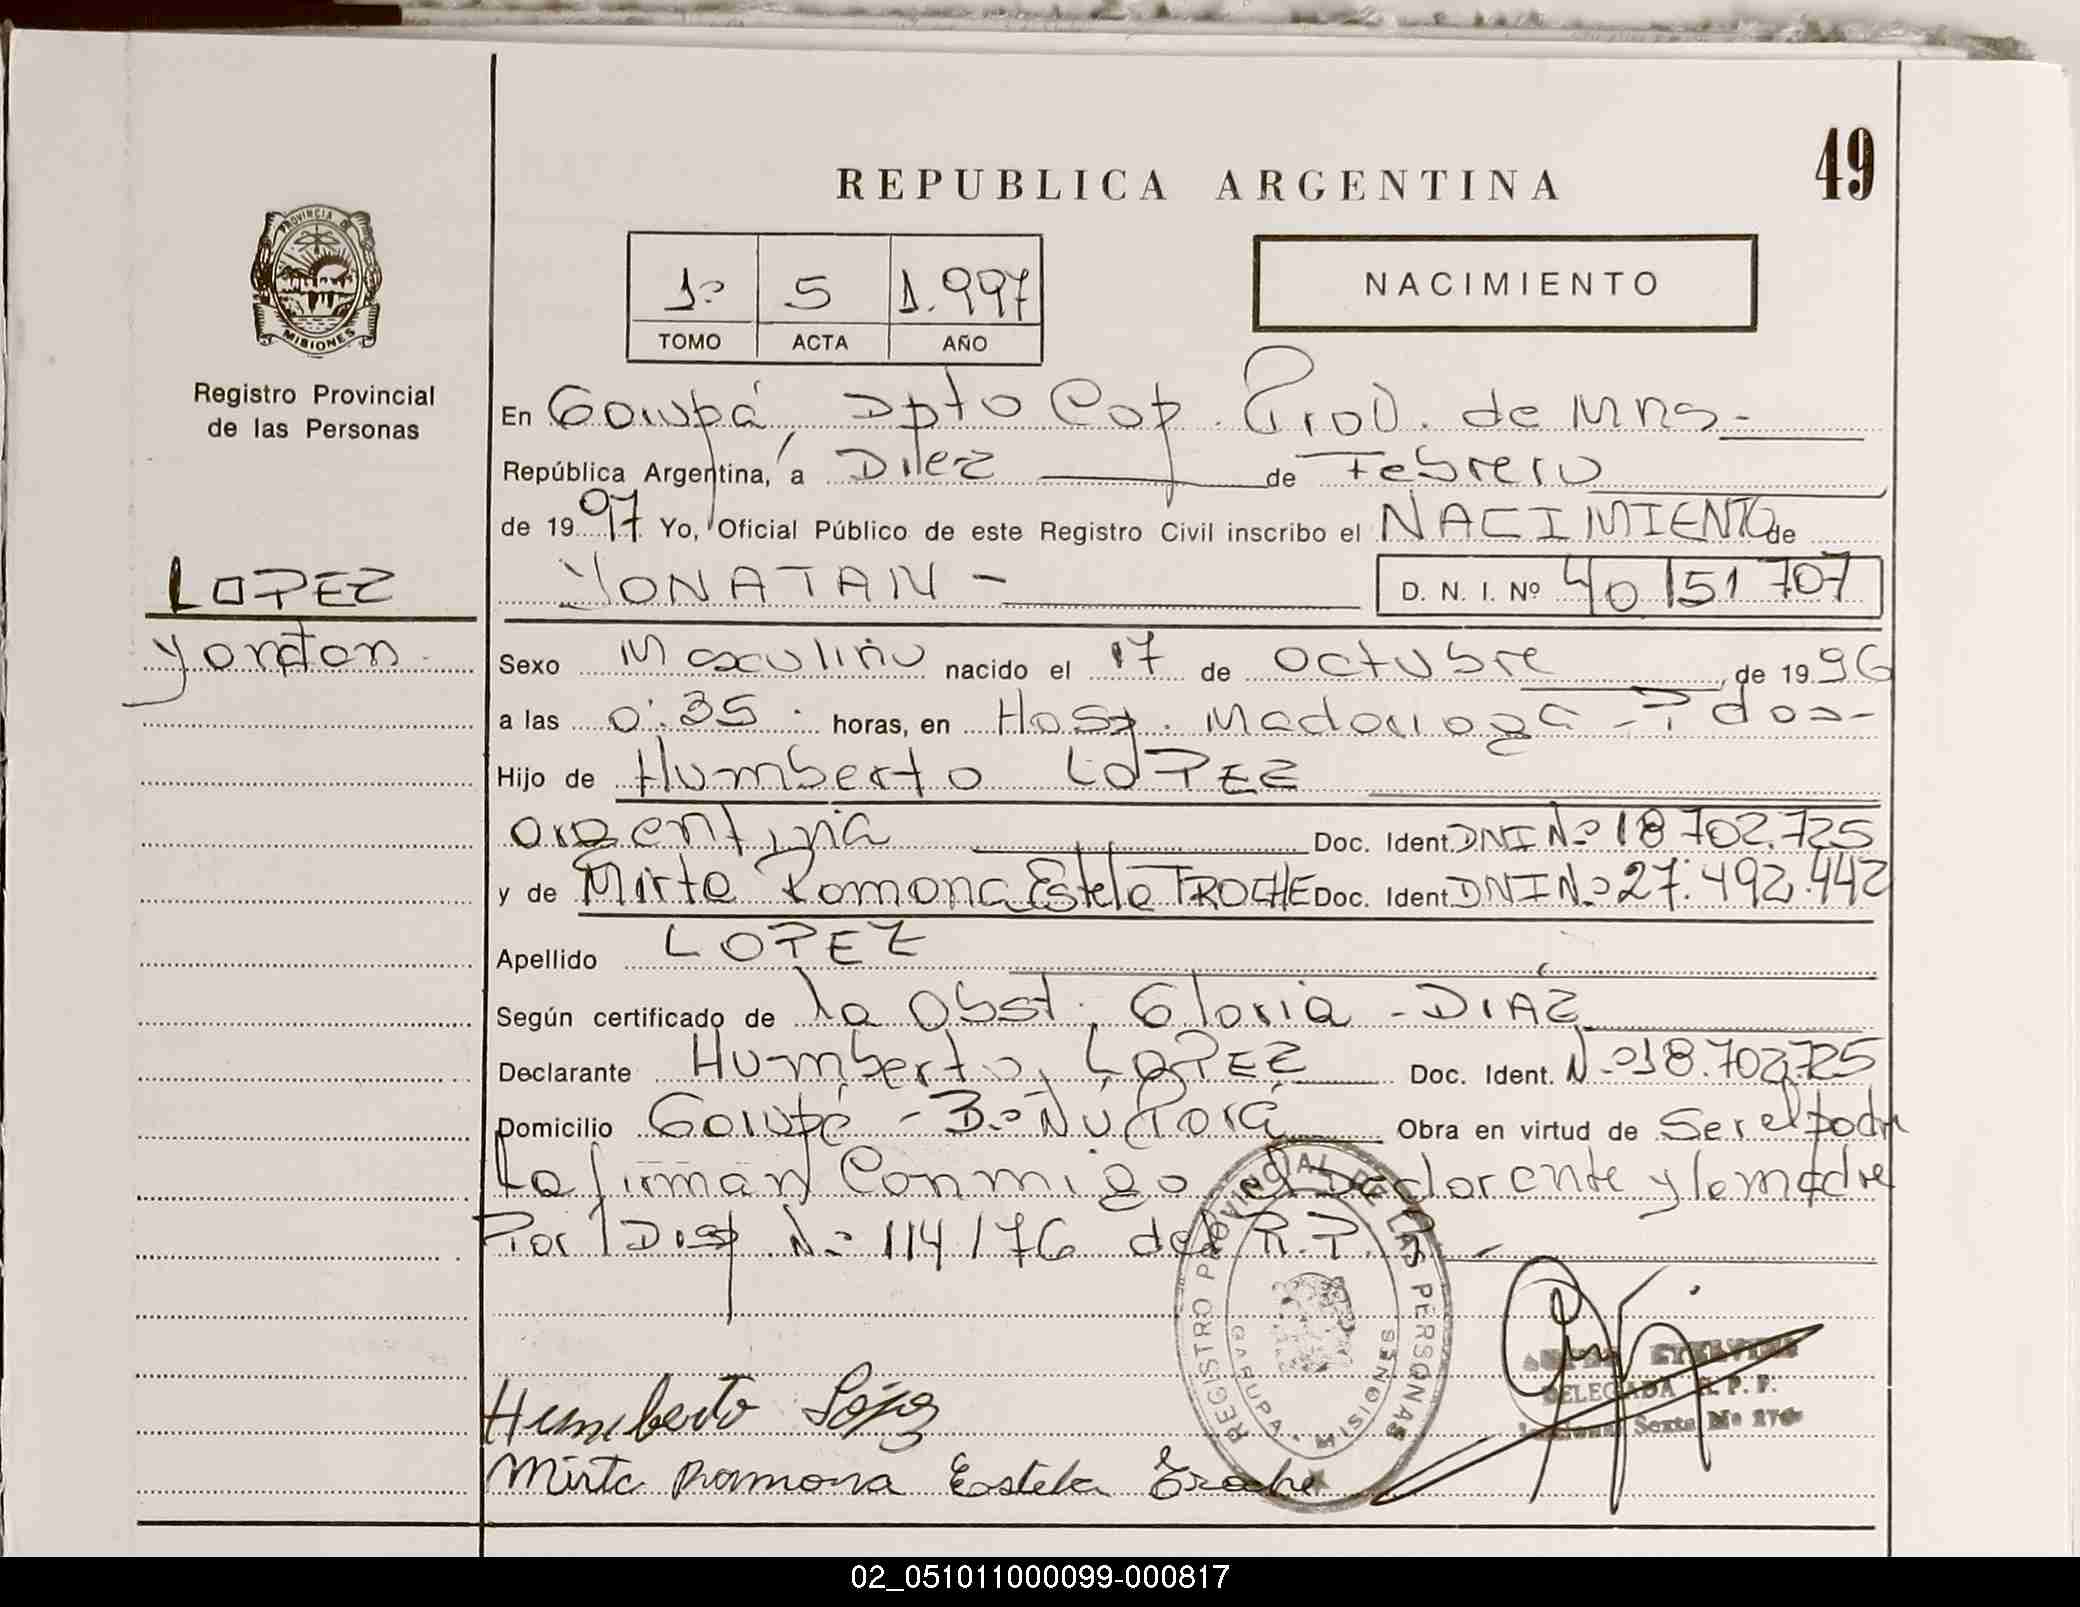 49
REPUBLICA ARGENTINA
PROVINCIA DE
MISIONES
1º 5 1.997
TOMO ACTA AÑO
NACIMIENTO
Registro Provincial
de las Personas
En Garupá, Dpto Cap. Prov. de Mns-
República Argentina, a Diez de Febrero
de 1997 Yo, Oficial Público de este Registro Civil inscribo el NACIMIENTO de
YONATAN - D. N. I. Nº 40 151 707
LOPEZ
Yonatan
Sexo Masculino nacido el 17 de octubre, de 1996
a las 0:35. horas, en Hosp. Madariaga - Pdas-
Hijo de Humberto LOPEZ
argentina Doc. Ident. DNI Nº 18 702.725
y de Mirta Ramona Estela TROCHE Doc. Ident. DNI Nº 27.492.442
Apellido LOPEZ
Según certificado de la Obst. Gloria - DIAZ
Declarante Humberto LOPEZ Doc. Ident. Nº 18.702.725
Domicilio Garupá - Bº Ñu Porá Obra en virtud de Ser el padre
La firman Conmigo el Declarante y la madre
Por Disp Nº 114/76 del R.P.P. -
REGISTRO PROVINCIAL DE LAS PERSONAS
GARUPA - MISIONES
ETELVINA
DELEGADA R. P. P.
Sexta Nº
Humberto López
Mirta Ramona Estela Troche
02_051011000099-000817